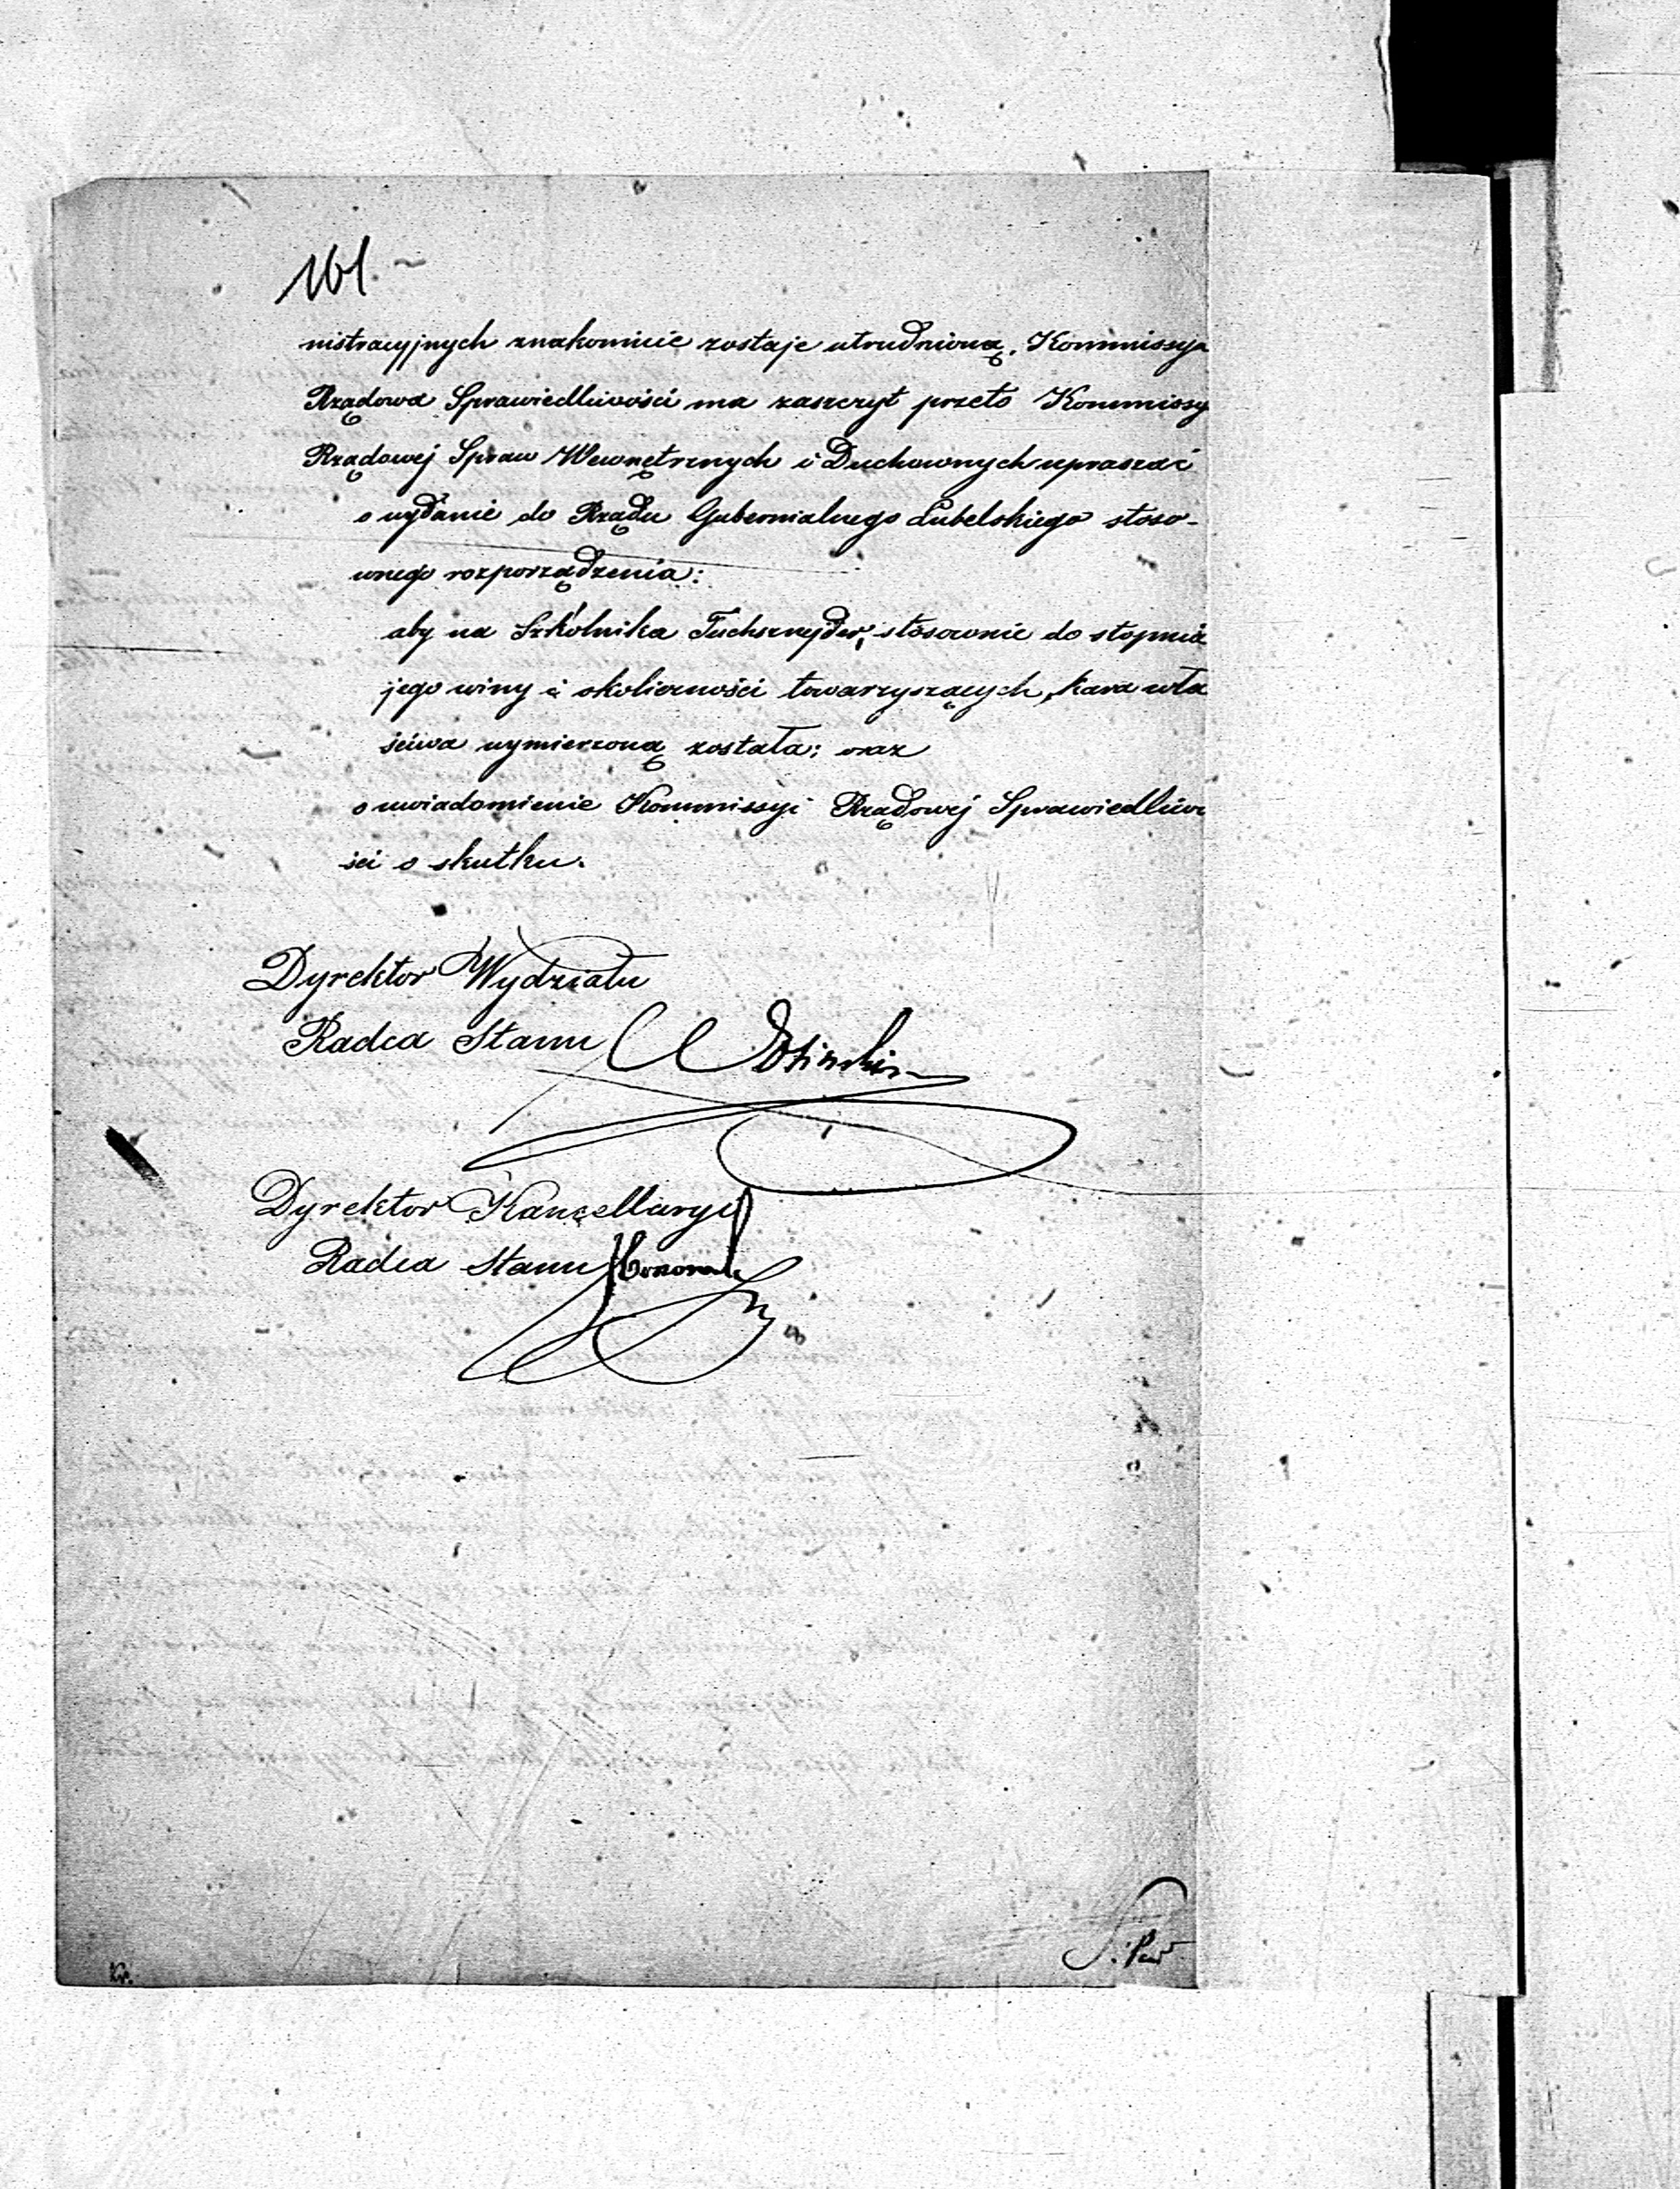 161.
nistracyjnych znakomicie zostaje utrudnioną. Kommissyja
Rządowa Sprawiedliwości ma zaszczyt przeto Kommissy
Rządowej Spraw Wewnętrznych i Duchownych upraszać
o wydanie do Rządu Gubernialnego Lubelskiego stoso-
wnego rozporządzenia:
aby na Szkólnika stosownie do stopnia
jego winy i okoliczności towarzyszących, kara wła
ściwa wymierzoną została; oraz
o uwiadomienie Kommissyi Rządowej Sprawiedliwo
ści o skutku.
Dyrektor Wydziału
Radca Stanu
Dyrektor Kancellaryi
Radca Stanu